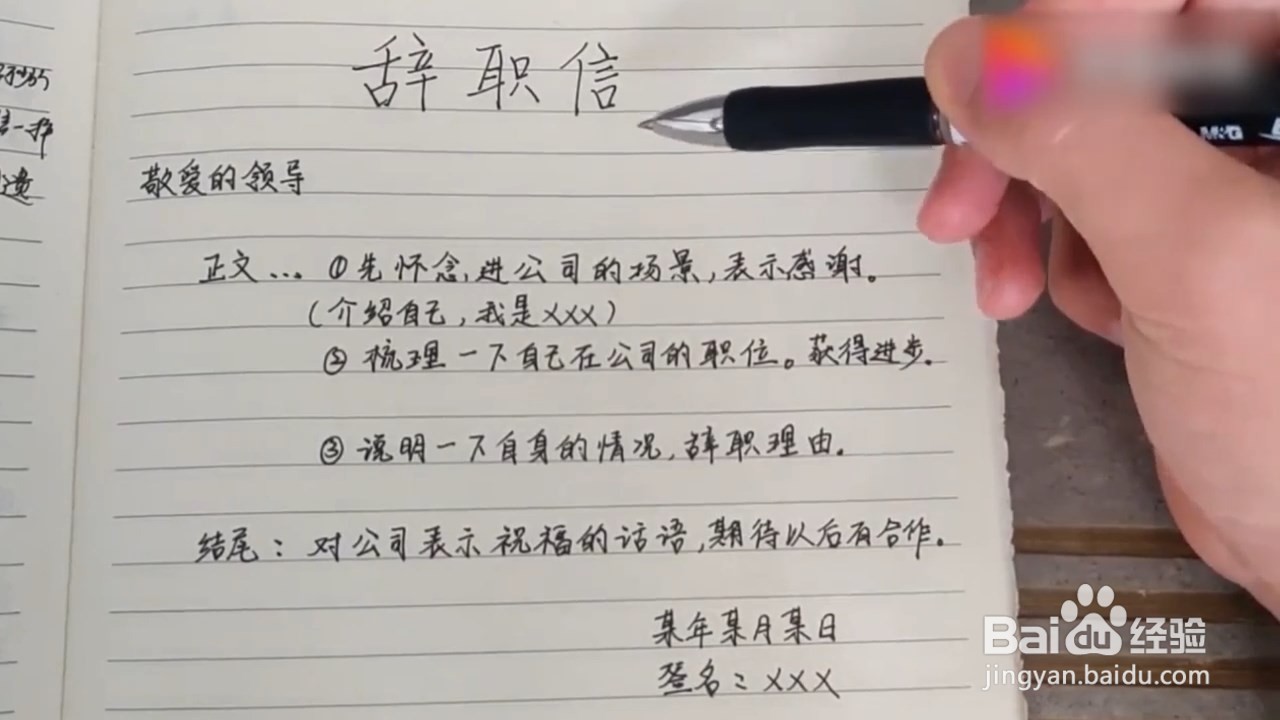 辞职信
敬爱的领导
正文... ①先怀念,进公司的场景,表示感谢。
(介绍自己,我是XXX)
② 梳理一下自己在公司的职位。获得进步.
③ 说明一下自身的情况,辞职理由.
结尾: 对公司表示祝福的话语,期待以后有合作.
某年某月某日
签名: XXX
M&G
Baidu经验
jingyan.baidu.com